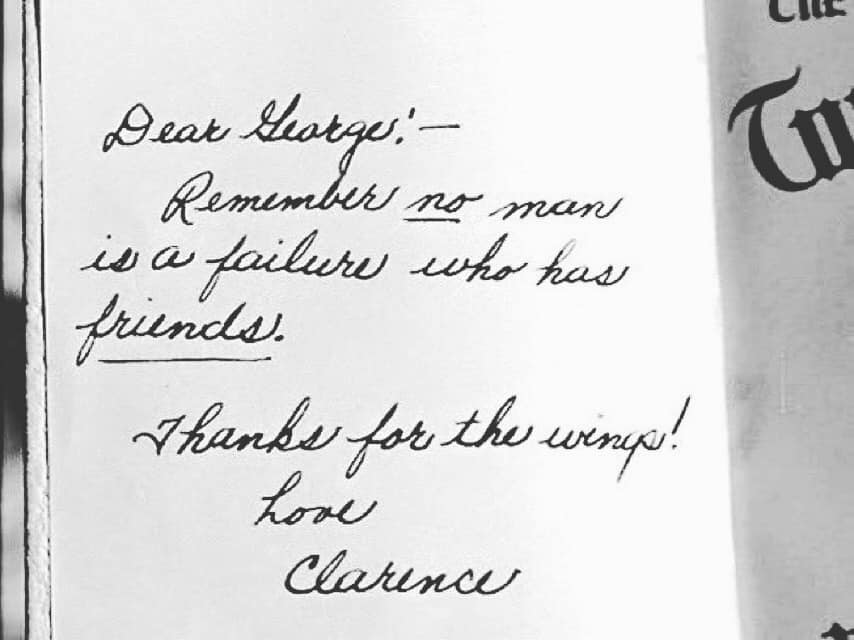 Dear George:—
Remember no man
is a failure who has
friends.
Thanks for the wings!
Love
Clarence
THE